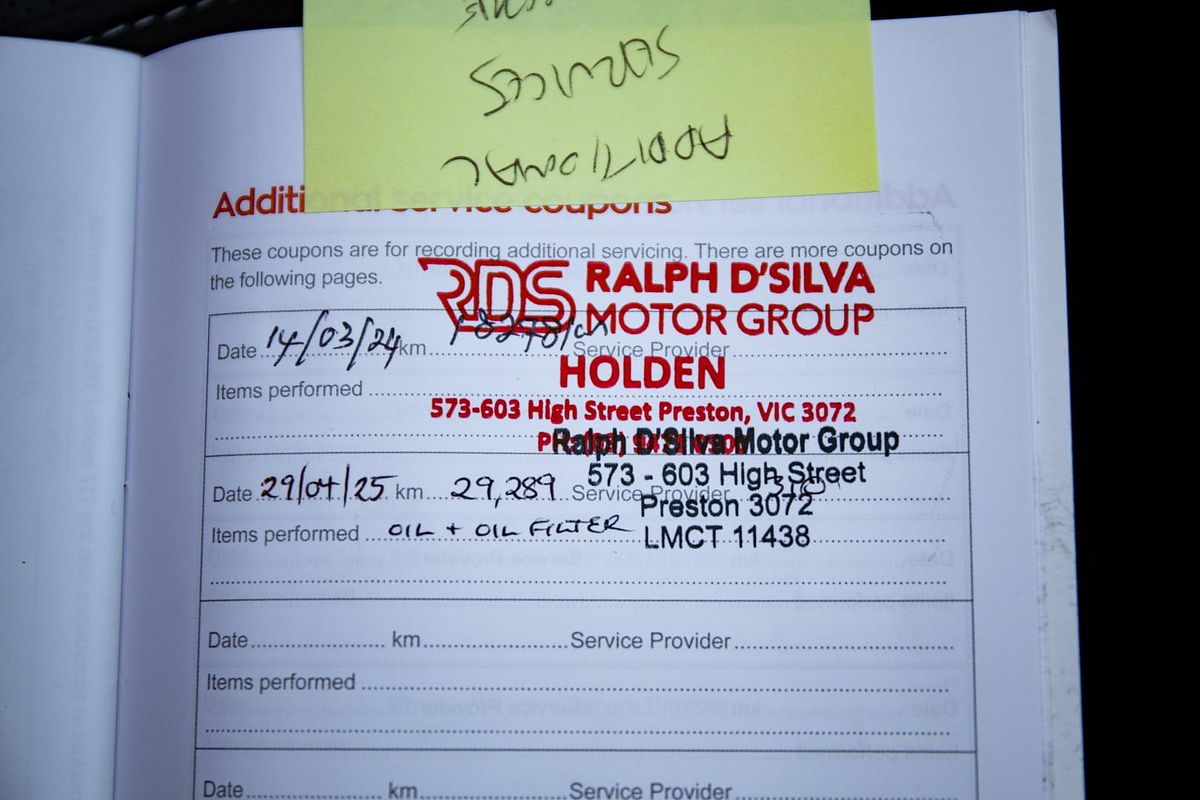 ADDITIONAL
SERVICES
Additional service coupons
These coupons are for recording additional servicing. There are more coupons on
the following pages.
RDS RALPH D'SILVA
MOTOR GROUP
HOLDEN
573-603 High Street Preston, VIC 3072
Date 14/03/24 km 18278km Service Provider
Items performed
Ralph D'Silva Motor Group
573 - 603 High Street
Preston 3072
LMCT 11438
Date 29/04/25 km 29,289 Service Provider
Items performed OIL + OIL FILTER
Date km Service Provider
Items performed
Date km Service Provider